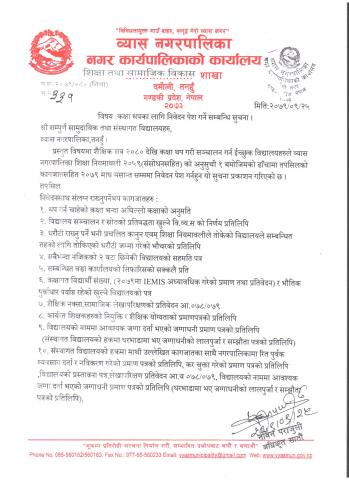 "विविधतायुक्त मार्ग शहर, समृद्ध मेरो व्यास नगर"
व्यास नगरपालिका
नगर कार्यपालिकाको कार्यालय
शिक्षा तथा सामाजिक विकास शाखा
दमौली, तनहुँ
गण्डकी प्रदेश, नेपाल
२०७३
मिति:२०७९/०९/२५
विषय :कक्षा थपका लागि निवेदन पेश गर्ने सम्बन्धि सुचना।
श्री सम्पूर्ण सामुदायिक तथा संस्थागत विद्यालयहरु,
व्यास नगरपालिका, तनहुँ।
प्रस्तुत विषयमा शैक्षिक सत्र २०८० देखि कक्षा थप गरी सञ्चालन गर्न ईच्छुक विद्यालयहरुले व्यास
नगरपालिका शिक्षा नियमावली २०७५(संसोधनसहित) को अनुसुची १ बमोजिमको ढाँचामा तपसिलको
कागजातसहित २०७९ माघ मसान्त सम्ममा निवेदन पेश गर्नुहुन यो सुचना प्रकाशन गरिएको छ।
तपसिल
निवेदनसाथ संलग्न राख्नुपर्ने कागजातहरु :
१. थप गर्न चाहेको कक्षा भन्दा अघिल्लो कक्षाको अनुमति
२. विद्यालय सञ्चालन र स्रोतको प्रतिवद्धता खुल्ने वि.व्य.स को निर्णय प्रतिलिपि
३. धरौटी राख्नु पर्ने भनी प्रचलित कानुन एवम् शिक्षा नियमावलीले तोकेको विद्यालयले सम्बन्धित
तहको लागि तोकिएको धरौटी जम्मा गरेको भौचरको प्रतिलिपि
४. सबैभन्दा नजिकको २ वटा छिमेकी विद्यालयको सहमति पत्र
५. सम्बन्धित वडा कार्यालयको सिफारिसको सक्कलै प्रति
६. कक्षागत विद्यार्थी संख्या, (२०७९मा IEMIS अध्यावधिक गरेको प्रमाण तथा प्रतिवेदन) र भौतिक
पूर्वाधार पर्याप्त रहेको खुल्ने विद्यालयको पत्र
७. शैक्षिक नक्सा,सामाजिक लेखापरिक्षणको प्रतिवेदन आ.व. ०७८/०७९
८. कार्यरत शिक्षकहरुको नियुक्ति र शैक्षिक योग्यताको प्रमाणपत्रको प्रतिलिपि
९. विद्यालयको नाममा आवश्यक जग्गा दर्ता भएको जग्गाधनी प्रमाण पत्रको प्रतिलिपि
(संस्थागत विद्यालयको हकमा घरभाडामा भए जग्गाधनीको लालपुर्जा र सम्झौता पत्रको प्रतिलिपि)
१०. संस्थागत विद्यालयको हकमा माथी उल्लेखित कागजातका साथै नगरपालिकामा रित पुर्वक
व्यवसाय दर्ता र नविकरण गरेको प्रमाण पत्रको प्रतिलिपि, कर चुक्ता गरेको प्रमाण पत्रको प्रतिलिपि
,विद्यालयको प्रस्तावना पत्र,लेखापरिक्षण प्रतिवेदन आ.व ०७८/०७९, विद्यालयको नाममा आवश्यक
जग्गा दर्ता भएको जग्गाधनी प्रमाण पत्रको प्रतिलिपि (घरभाडामा भए जग्गाधनीको लालपुर्जा र सम्झौता
पत्रको प्रतिलिपि),
Phone No. 065-560162/560163, Fax No.: 977-65-560233 Email: vyasmunicipality@gmail.com Web: www.vyasmun.gov.np